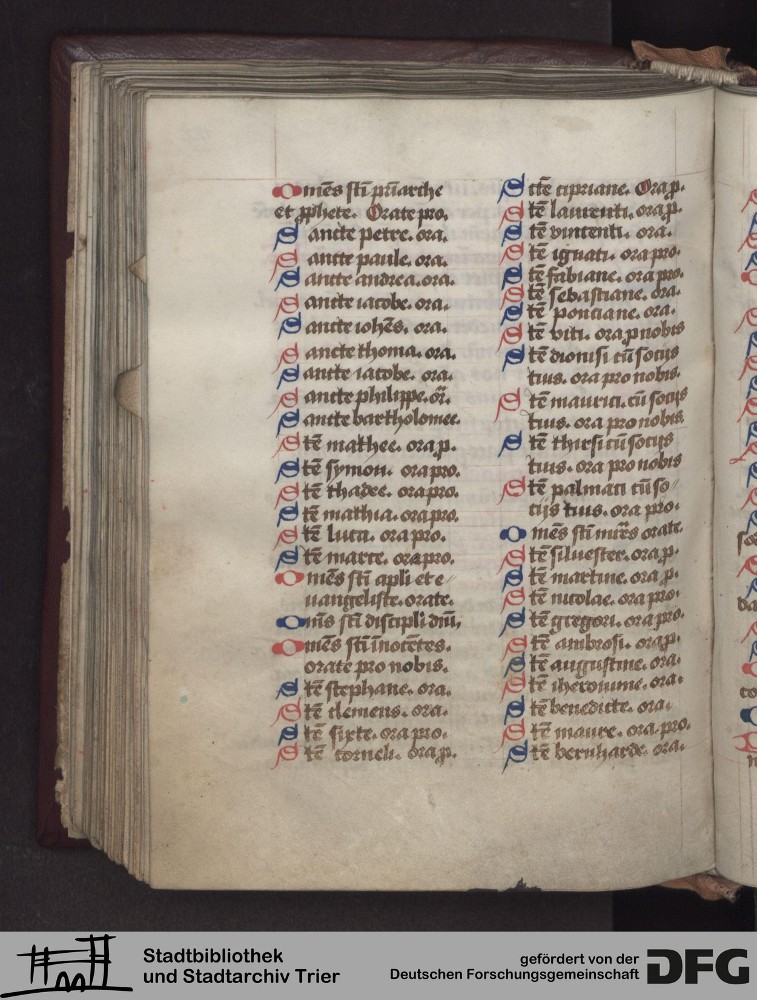 Omēs sc̄i pr̄iarche
et ꝓphete. Orate pro.
Sancte petre. ora.
Sancte paule. ora.
Sancte andrea. ora.
Sancte iacobe. ora.
Sancte ioh̄es. ora.
Sancte thoma. ora.
Sancte iacobe. ora.
Sancte philippe. or̄.
Sancte bartholomee.
Sc̄e mathee. ora ꝓ.
Sc̄e symon. ora pro.
Sc̄e thadee. ora pro.
Sc̄e mathia. ora pro.
Sc̄e luca. ora pro.
Sc̄e marce. ora pro.
Omēs sc̄i apl̄i et e
uangeliste. orate.
Om̄s sc̄i discipl̄i dn̄i,
Omēs sc̄i īnocētes.
orate pro nobis.
Sc̄e stephane. ora.
Sc̄e clemens. ora.
Sc̄e sixte. ora pro.
Sc̄e corneli. ora ꝓ.
Sc̄e cipriane. Ora ꝓ.
Sc̄e laurenti. ora ꝓ.
Sc̄e vincenti. ora.
Sc̄e ignati. ora pro.
Sc̄e fabiane. ora pro.
Sc̄e sebastiane. ora.
Sc̄e ponciane. ora.
Sc̄e viti. ora ꝓ nobis
Sc̄e dionisi cū socijs
tuis. ora pro nobis.
Sc̄e maurici. cū socijs
tuis. ora pro nobis.
Sc̄e thirsi cū socijs
tuis. ora pro nobis
Sc̄e palmati cū so
cijs tuis. ora pro.
Omēs sc̄i mr̄es orate
Sc̄e siluester. ora ꝓ.
Sc̄e martine. ora ꝓ.
Sc̄e nicolae. ora pro.
Sc̄e gregori. ora pro.
Sc̄e ambrosi. ora ꝓ.
Sc̄e augustine. ora.
Sc̄e iheronime. ora.
Sc̄e benedicte. ora.
Sc̄e maure. ora pro.
Sc̄e bernharde. ora.
Stadtbibliothek
und Stadtarchiv Trier
gefördert von der
Deutschen Forschungsgemeinschaft
DFG